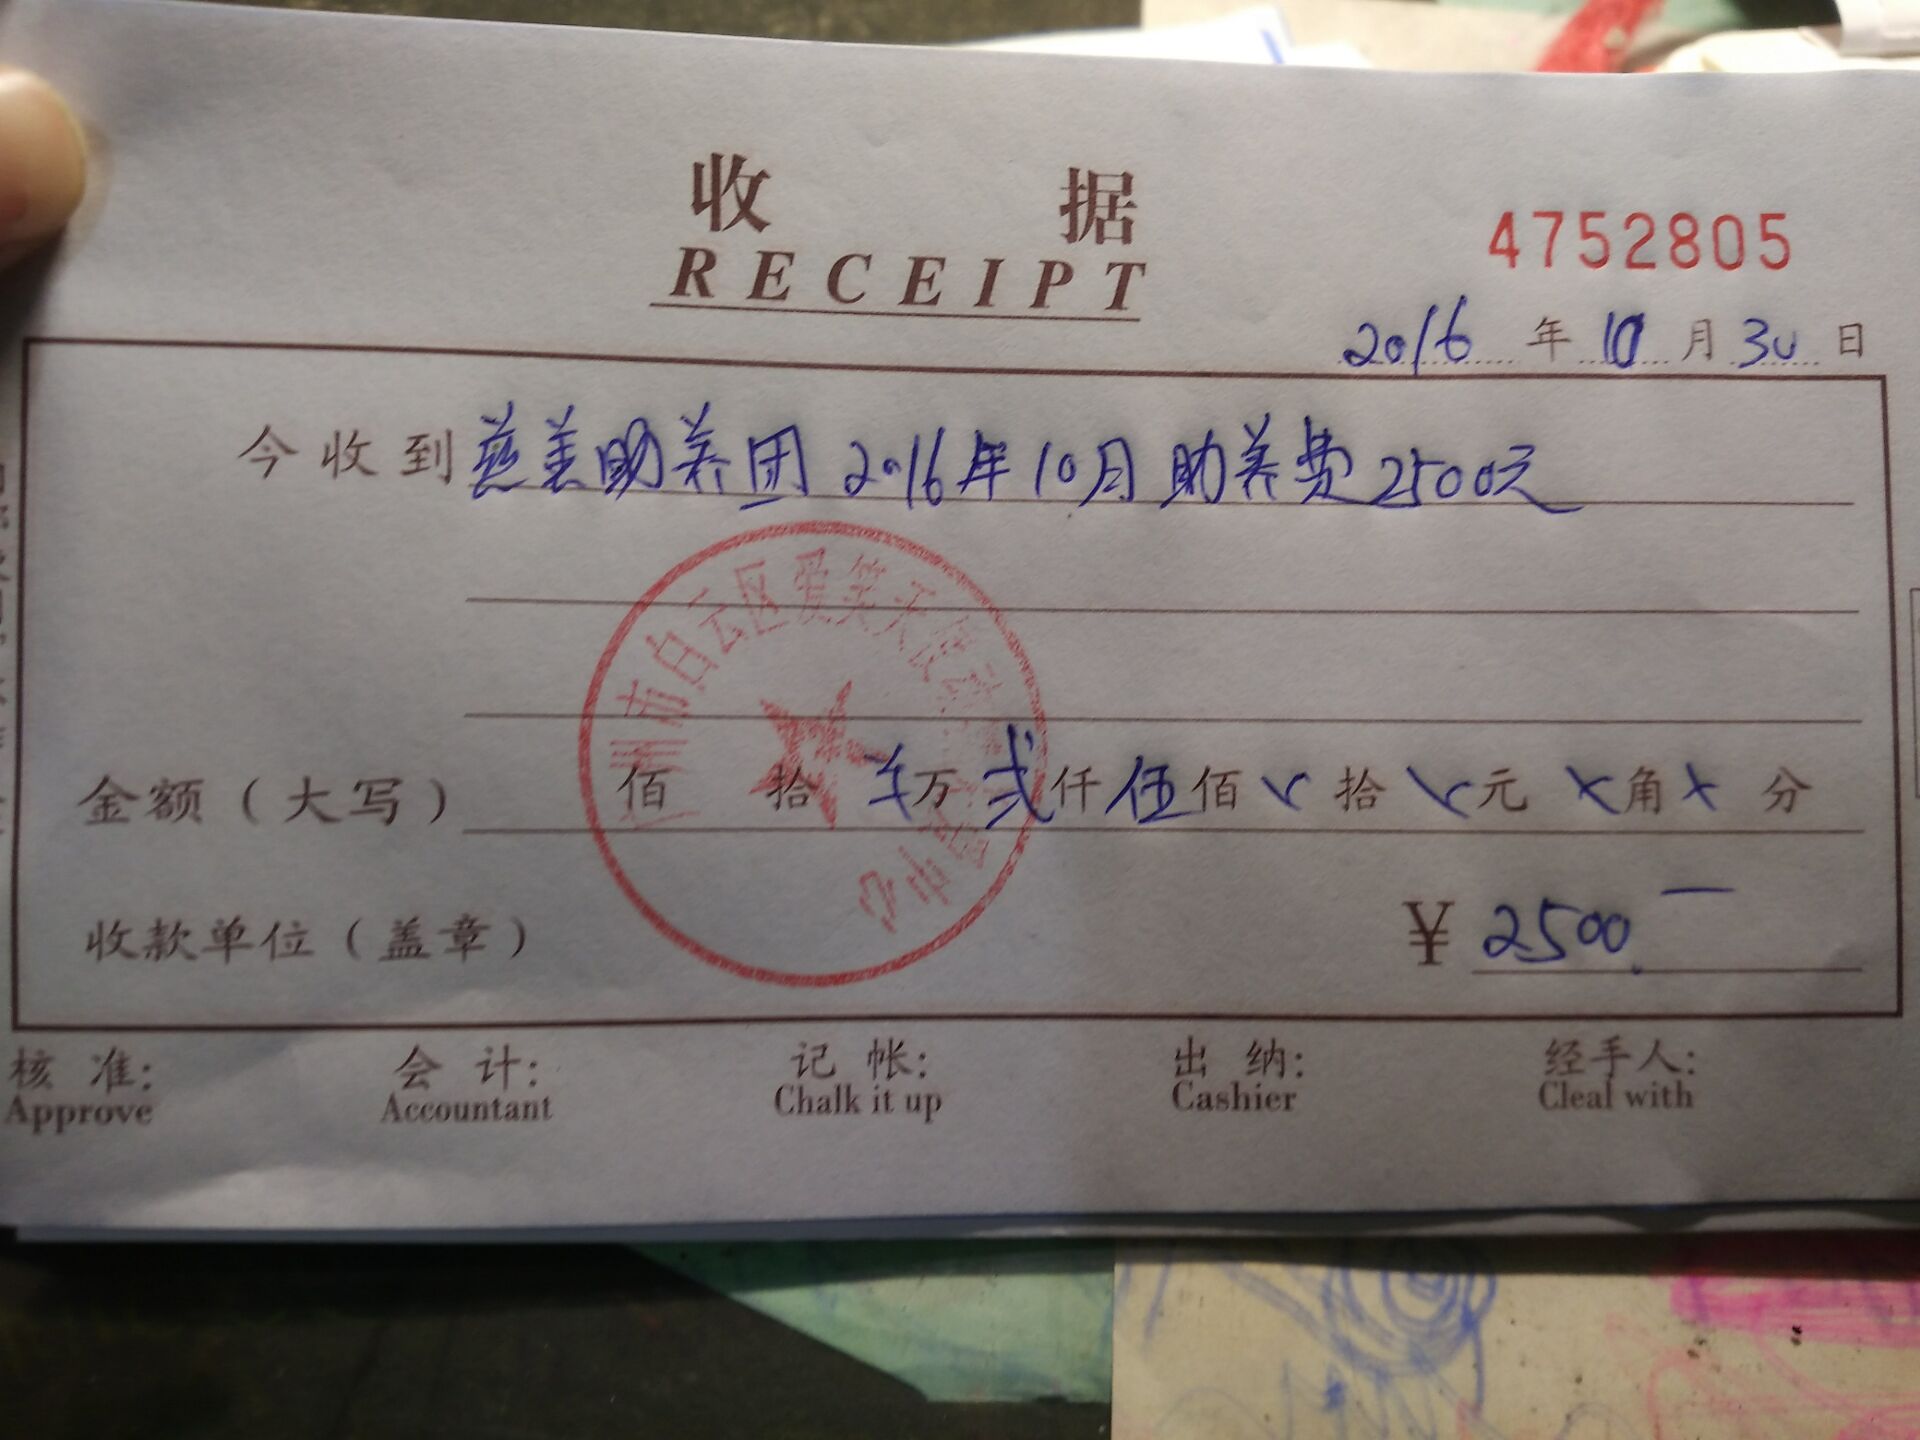 收据
RECEIPT
4752805
2016年10月30日
今收到慈善助养团2016年10月助养费2500元
州市白云区爱笑天使
金额（大写） 佰 拾 万贰仟伍佰 拾 元 角 分
收款单位（盖章） ¥2500.一
核准: 会计: 记帐: 出纳: 经手人:
Approve Accountant Chalk it up Cashier Cleal with